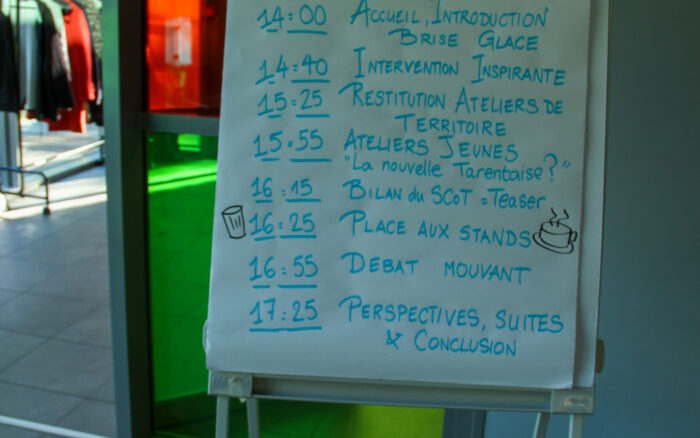 14:00 Accueil, Introduction
Brise Glace
14:40 Intervention Inspirante
15:25 Restitution Ateliers de
Territoire
15:55 Ateliers Jeunes
"La nouvelle Tarentaise?"
16:15 Bilan du SCoT = Teaser
16:25 Place aux stands
16:55 Debat mouvant
17:25 Perspectives, suites
& Conclusion